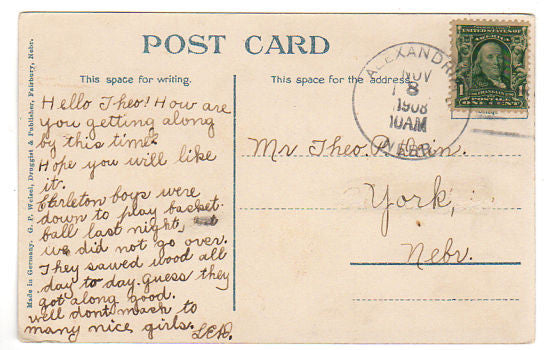 POST CARD
This space for writing.
This space for the address.
Hello Theo! How are
you getting along
by this time?
Hope you will like
it.
Carleton boys were
down to play basket-
ball last night,
we did not go over.
They sawed wood all
day to day. Guess they
got along good.
well dont mash to
many nice girls.
Mr. Theo.
York,
Nebr.
ALEXANDRI
NOV
8
1908
10AM
NEBR.
1
1
POSTAGE
ONE CENT
Made in Germany. G. P. Weisel, Druggist & Publisher, Fairbury, Nebr.